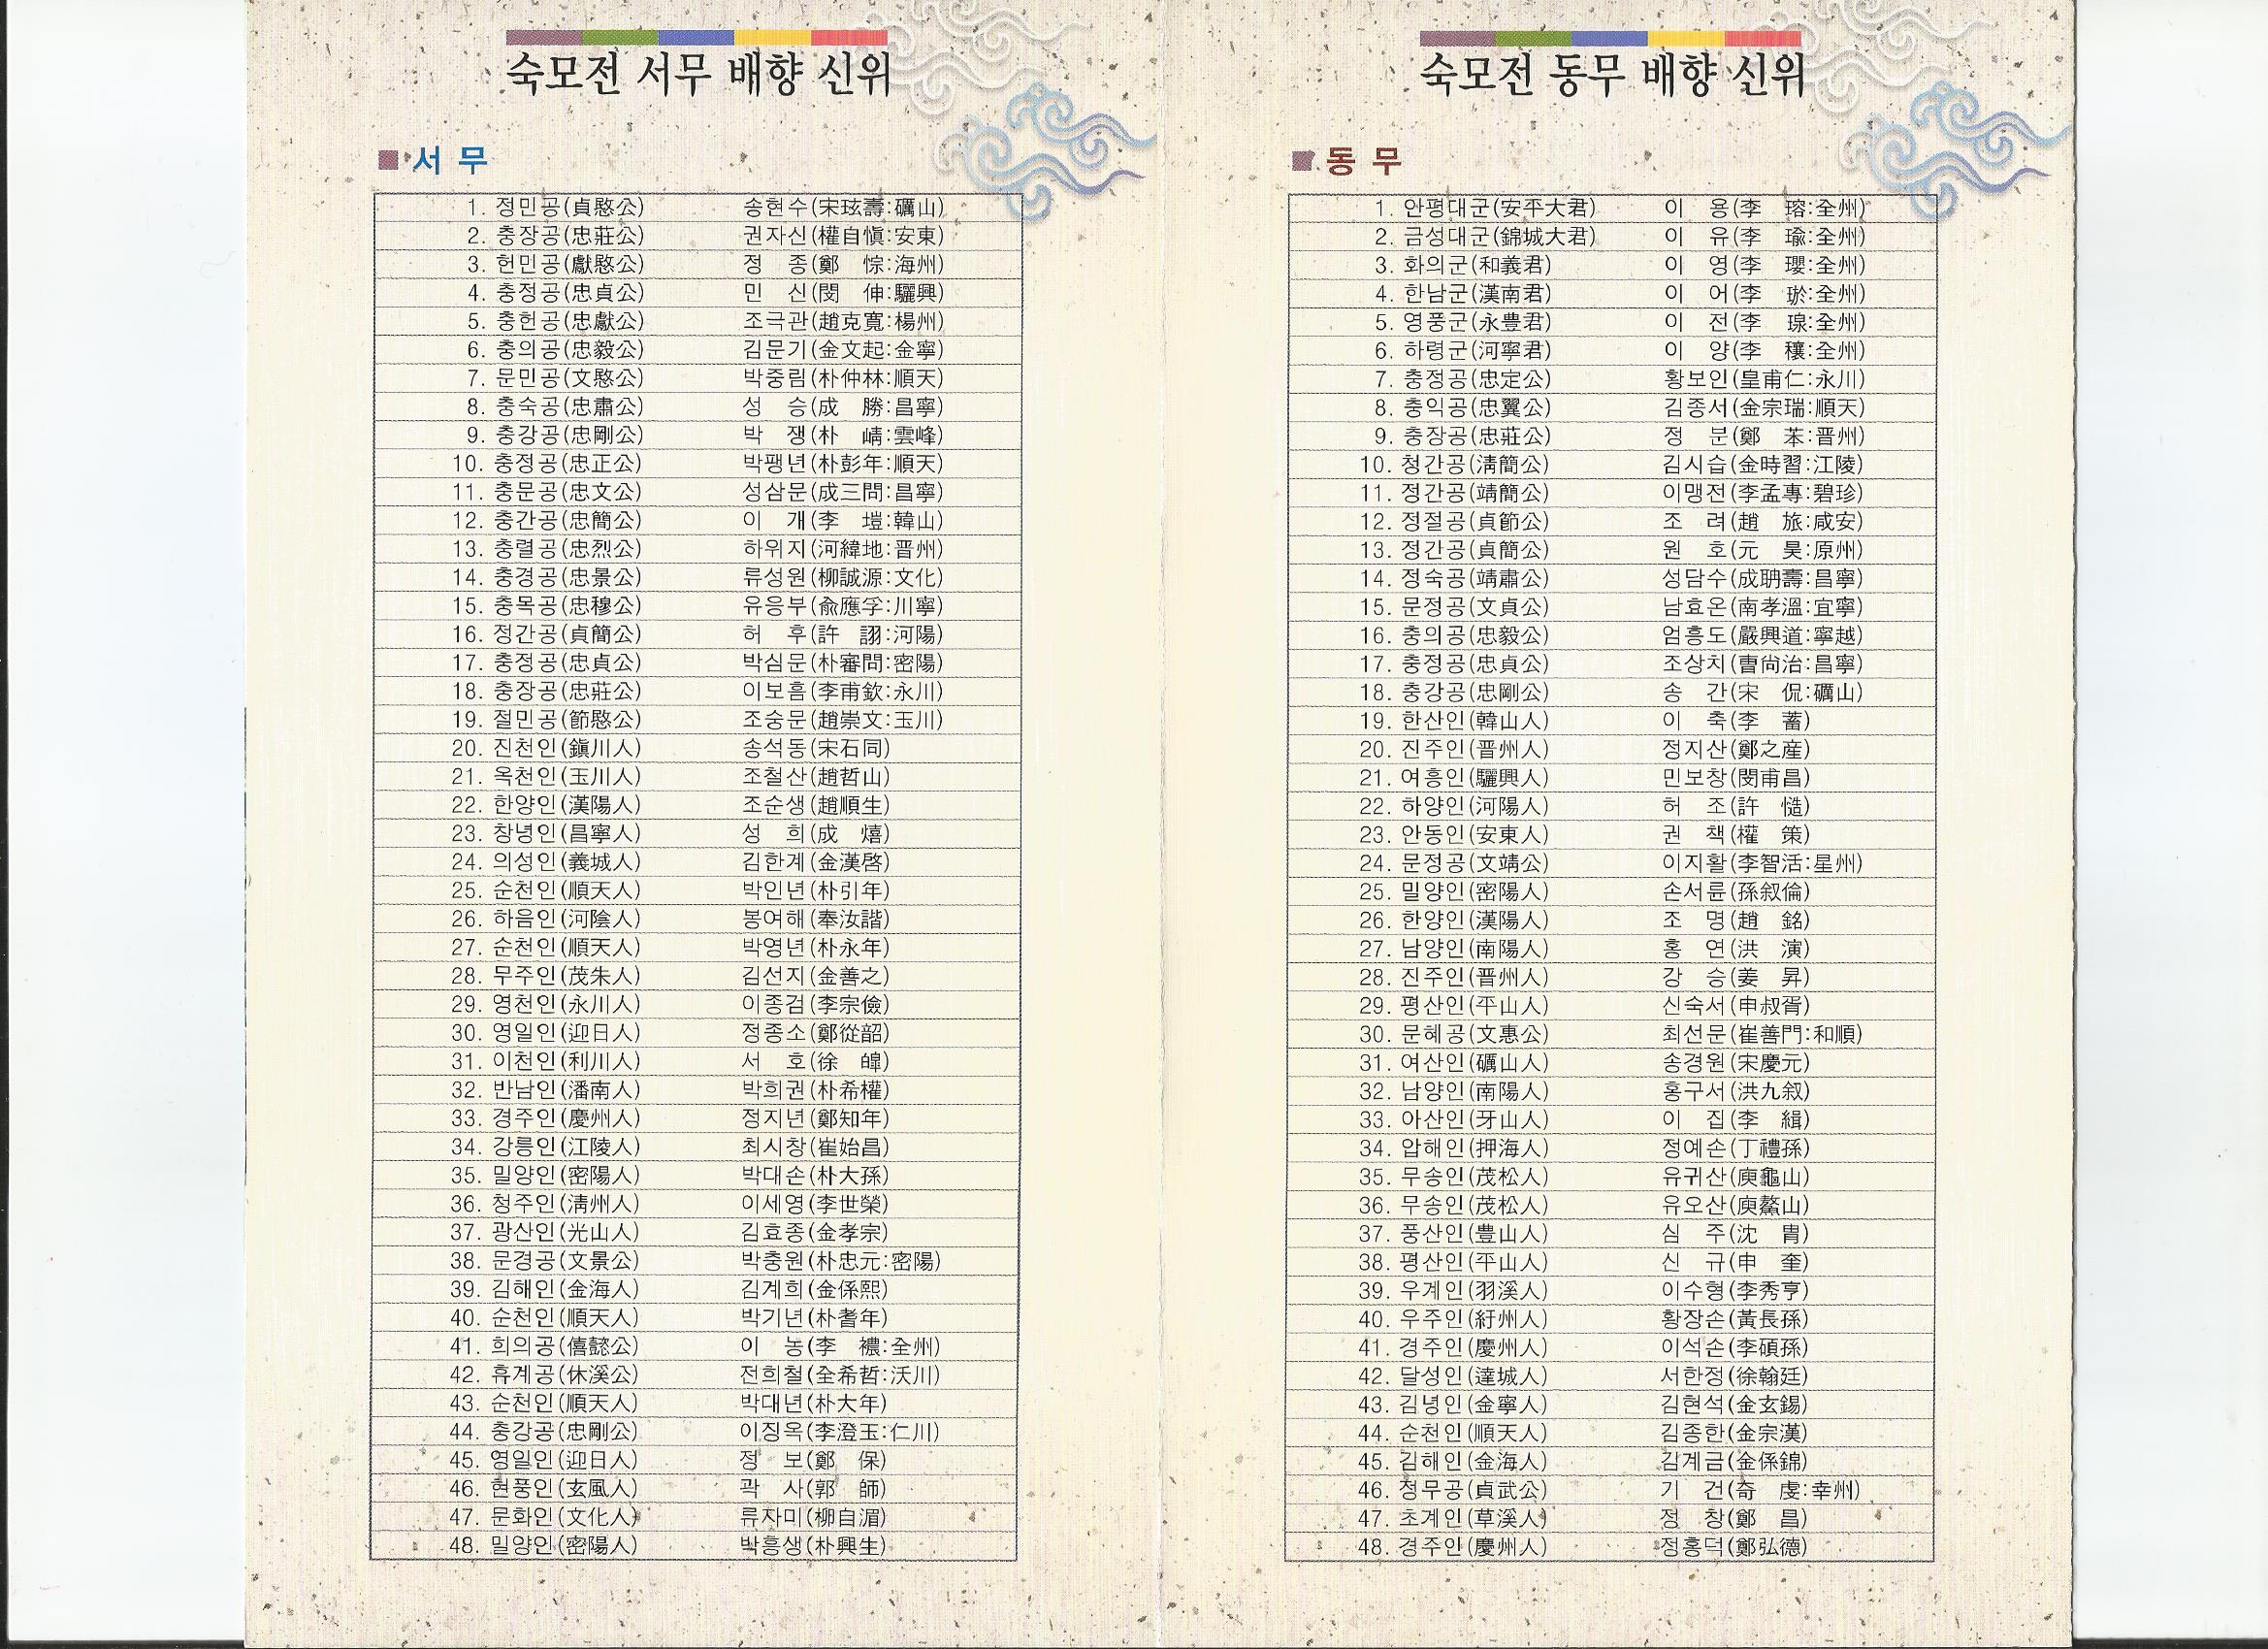 숙모전 서무 배향 신위
서 무
1. 정민공(貞愍公) 송현수(宋玹壽:礪山)
2. 충장공(忠莊公) 권자신(權自愼:安東)
3. 헌민공(獻愍公) 정 종(鄭 悰:海州)
4. 충정공(忠貞公) 민 신(閔 伸:驪興)
5. 충헌공(忠獻公) 조극관(趙克寬:楊州)
6. 충의공(忠毅公) 김문기(金文起:金寧)
7. 문민공(文愍公) 박중림(朴仲林:順天)
8. 충숙공(忠肅公) 성 승(成 勝:昌寧)
9. 충강공(忠剛公) 박 쟁(朴 崝:雲峰)
10. 충정공(忠正公) 박팽년(朴彭年:順天)
11. 충문공(忠文公) 성삼문(成三問:昌寧)
12. 충간공(忠簡公) 이 개(李 塏:韓山)
13. 충렬공(忠烈公) 하위지(河緯地:晋州)
14. 충경공(忠景公) 류성원(柳誠源:文化)
15. 충목공(忠穆公) 유응부(兪應孚:川寧)
16. 정간공(貞簡公) 허 후(許 詡:河陽)
17. 충정공(忠貞公) 박심문(朴審問:密陽)
18. 충장공(忠莊公) 이보흠(李甫欽:永川)
19. 절민공(節愍公) 조숭문(趙崇文:玉川)
20. 진천인(鎭川人) 송석동(宋石同)
21. 옥천인(玉川人) 조철산(趙哲山)
22. 한양인(漢陽人) 조순생(趙順生)
23. 창녕인(昌寧人) 성 희(成 熺)
24. 의성인(義城人) 김한계(金漢啓)
25. 순천인(順天人) 박인년(朴引年)
26. 하음인(河陰人) 봉여해(奉汝諧)
27. 순천인(順天人) 박영년(朴永年)
28. 무주인(茂朱人) 김선지(金善之)
29. 영천인(永川人) 이종검(李宗儉)
30. 영일인(迎日人) 정종소(鄭從韶)
31. 이천인(利川人) 서 호(徐 皞)
32. 반남인(潘南人) 박희권(朴希權)
33. 경주인(慶州人) 정지년(鄭知年)
34. 강릉인(江陵人) 최시창(崔始昌)
35. 밀양인(密陽人) 박대손(朴大孫)
36. 청주인(淸州人) 이세영(李世榮)
37. 광산인(光山人) 김효종(金孝宗)
38. 문경공(文景公) 박충원(朴忠元:密陽)
39. 김해인(金海人) 김계희(金係熙)
40. 순천인(順天人) 박기년(朴耆年)
41. 희의공(僖懿公) 이 농(李 襛:全州)
42. 휴계공(休溪公) 전희철(全希哲:沃川)
43. 순천인(順天人) 박대년(朴大年)
44. 충강공(忠剛公) 이징옥(李澄玉:仁川)
45. 영일인(迎日人) 정 보(鄭 保)
46. 현풍인(玄風人) 곽 사(郭 師)
47. 문화인(文化人) 류자미(柳自湄)
48. 밀양인(密陽人) 박흥생(朴興生)
숙모전 동무 배향 신위
동 무
1. 안평대군(安平大君) 이 용(李 瑢:全州)
2. 금성대군(錦城大君) 이 유(李 瑜:全州)
3. 화의군(和義君) 이 영(李 瓔:全州)
4. 한남군(漢南君) 이 어(李 𤥽:全州)
5. 영풍군(永豊君) 이 전(李 瑔:全州)
6. 하령군(河寧君) 이 양(李 穰:全州)
7. 충정공(忠定公) 황보인(皇甫仁:永川)
8. 충익공(忠翼公) 김종서(金宗瑞:順天)
9. 충장공(忠莊公) 정 분(鄭 苯:晋州)
10. 청간공(淸簡公) 김시습(金時習:江陵)
11. 정간공(靖簡公) 이맹전(李孟專:碧珍)
12. 정절공(貞節公) 조 려(趙 旅:咸安)
13. 정간공(貞簡公) 원 호(元 昊:原州)
14. 정숙공(靖肅公) 성담수(成聃壽:昌寧)
15. 문정공(文貞公) 남효온(南孝溫:宜寧)
16. 충의공(忠毅公) 엄흥도(嚴興道:寧越)
17. 충정공(忠貞公) 조상치(曺尙治:昌寧)
18. 충강공(忠剛公) 송 간(宋 侃:礪山)
19. 한산인(韓山人) 이 축(李 蓄)
20. 진주인(晋州人) 정지산(鄭之産)
21. 여흥인(驪興人) 민보창(閔甫昌)
22. 하양인(河陽人) 허 조(許 慥)
23. 안동인(安東人) 권 책(權 策)
24. 문정공(文靖公) 이지활(李智活:星州)
25. 밀양인(密陽人) 손서륜(孫叙倫)
26. 한양인(漢陽人) 조 명(趙 銘)
27. 남양인(南陽人) 홍 연(洪 演)
28. 진주인(晋州人) 강 승(姜 昇)
29. 평산인(平山人) 신숙서(申叔胥)
30. 문혜공(文惠公) 최선문(崔善門:和順)
31. 여산인(礪山人) 송경원(宋慶元)
32. 남양인(南陽人) 홍구서(洪九叙)
33. 아산인(牙山人) 이 집(李 緝)
34. 압해인(押海人) 정예손(丁禮孫)
35. 무송인(茂松人) 유귀산(庾龜山)
36. 무송인(茂松人) 유오산(庾鰲山)
37. 풍산인(豊山人) 심 주(沈 胄)
38. 평산인(平山人) 신 규(申 奎)
39. 우계인(羽溪人) 이수형(李秀亨)
40. 우주인(紆州人) 황장손(黃長孫)
41. 경주인(慶州人) 이석손(李碩孫)
42. 달성인(達城人) 서한정(徐翰廷)
43. 김녕인(金寧人) 김현석(金玄錫)
44. 순천인(順天人) 김종한(金宗漢)
45. 김해인(金海人) 감계금(金係錦)
46. 정무공(貞武公) 기 건(奇 虔:幸州)
47. 초계인(草溪人) 정 창(鄭 昌)
48. 경주인(慶州人) 정홍덕(鄭弘德)